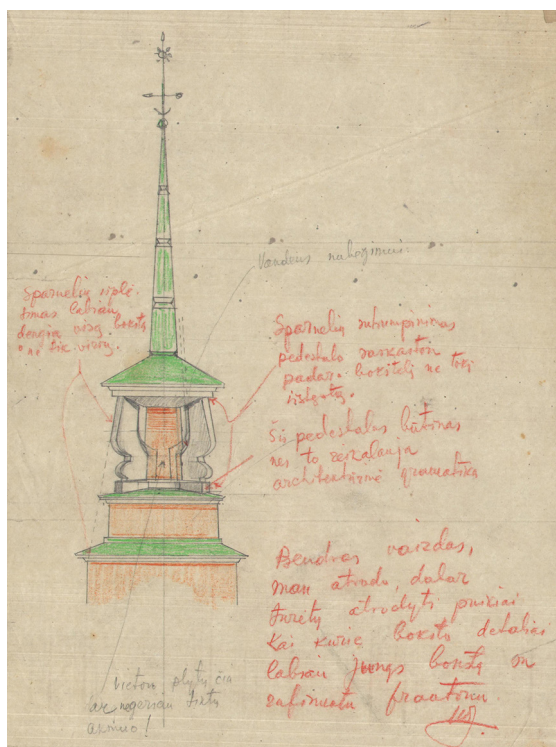 Vandens nubėgimui.
Sparnelių siplė-
timas labiau
dengia visą bokštą
ne tik viršų.
Sparnelių sutrumpinimas
pedestalo sąskaiton
padar. bokštelį ne tokį
ištęstą.
Šis pedestalas būtinas
nes to reikalauja
architektūrinė gramatika
Bendras vaizdas,
man atrodo, dabar
turėtų atrodyti puikiai
Kai kurie bokšto detaliai
labiau jungs bokštą su
frontonu
vieton plytų čia
ar negeriau tiktų
akmuo!